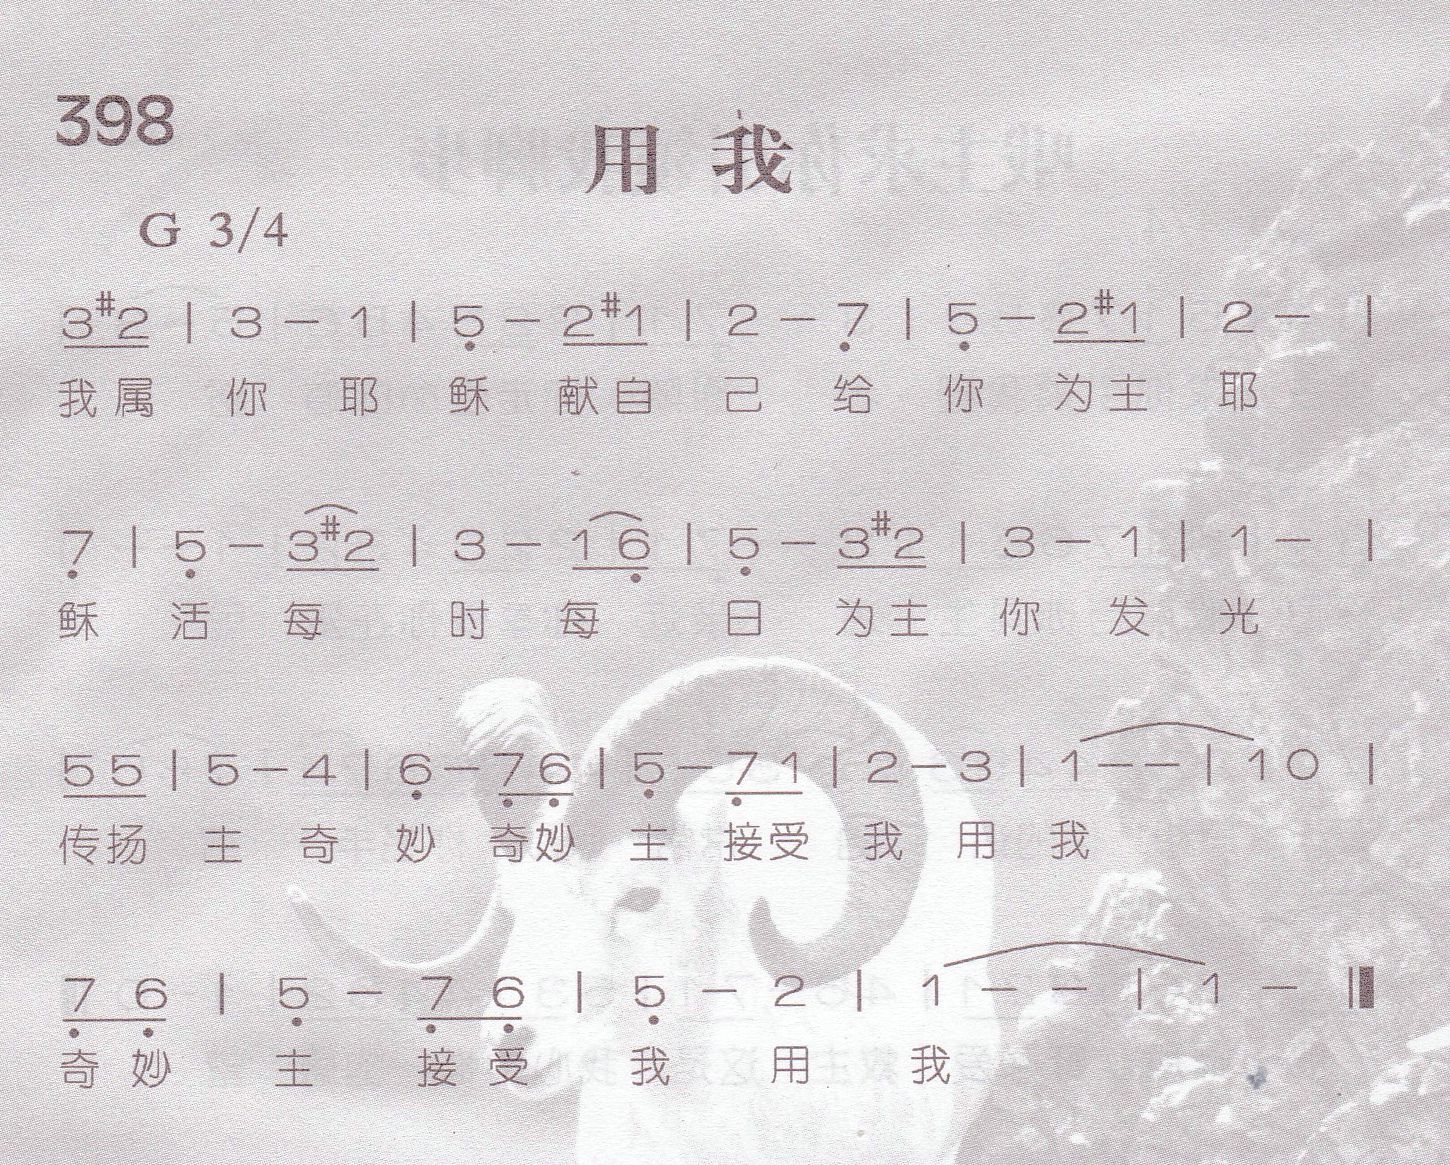 398
用 我
G 3/4
3#2 | 3 – 1 | 5̣ – 2#1 | 2 – 7̣ | 5̣ – 2#1 | 2 – |
我属 你 耶 稣 献自 己 给 你 为主 耶
7̣ | 5̣ – 3#2 | 3 – 1 6̣ | 5̣ – 3#2 | 3 – 1 | 1 – |
稣 活 每 时 每 日 为主 你 发 光
5 5 | 5 – 4 | 6̣ – 7̣ 6̣ | 5̣ – 7̣ 1 | 2 – 3 | 1 – – | 1 0 |
传扬 主 奇 妙 奇妙 主 接受 我 用 我
7̣ 6̣ | 5̣ – 7̣ 6̣ | 5̣ – 2 | 1 – – | 1 – ‖
奇 妙 主 接 受 我 用 我